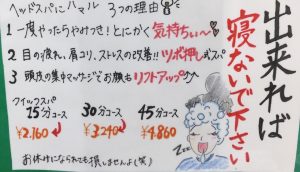 ヘッドスパにハマル 3つの理由
1 一度やったらやみつき!とにかく気持ちぃ〜
2 目の疲れ、肩コリ、ストレスの改善!!ツボ押し式スパ
3 頭皮の集中マッサージでお顔もリフトアップ↗
クイックスパ
15分コース
¥2.160
30分コース
¥3240
45分コース
¥4.860
お休みになられても損しませんよ(笑)
出来れば
寝ないで下さい
Zz